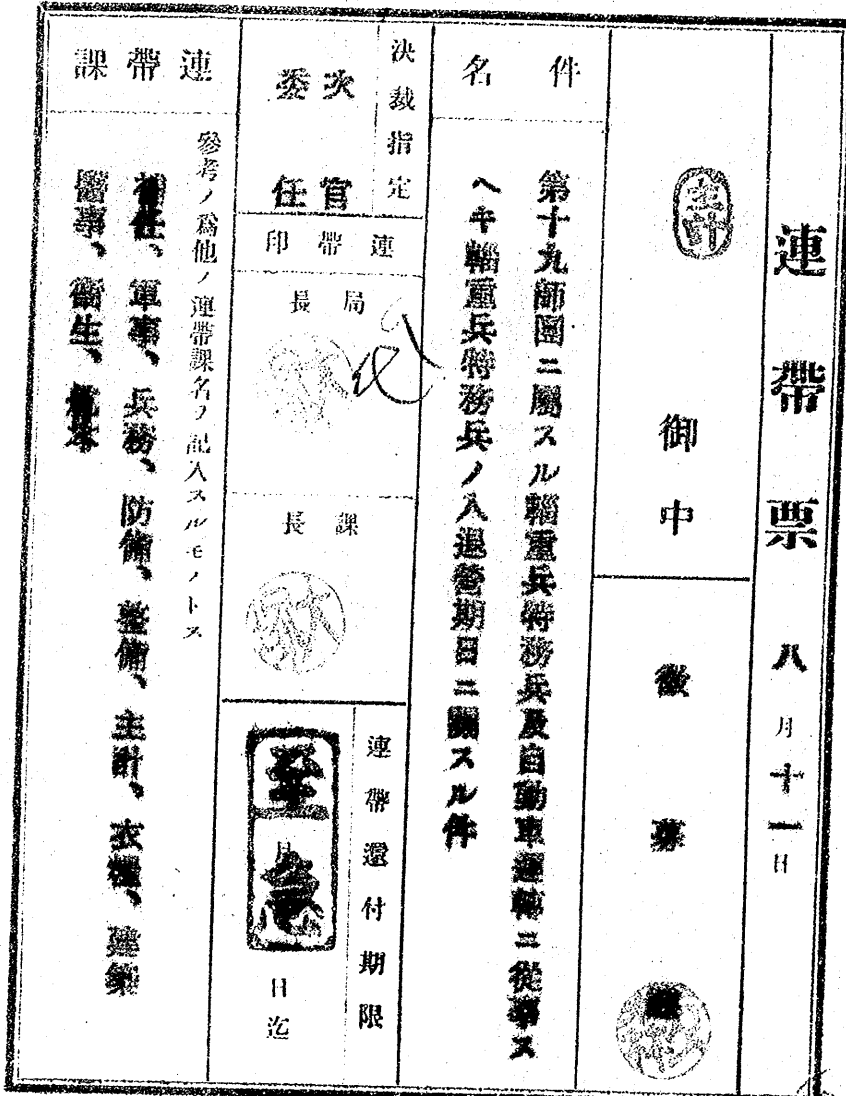 連帶票 八月十一日
主計 御中
徵募課
件名
第十九師團ニ屬スル輜重兵特務兵及自動車運轉ニ從事ス
ヘキ輜重兵特務兵ノ入退營期日ニ關スル件
決裁指定
次官
委任
連帶印
局長
代
課長
連帶還付期限
至急
月
日迄
連帶課
參考ノ爲他ノ連帶課名ヲ記入スルモノトス
補任、軍事、兵務、防備、整備、主計、衣糧、建築
醫事、衞生、